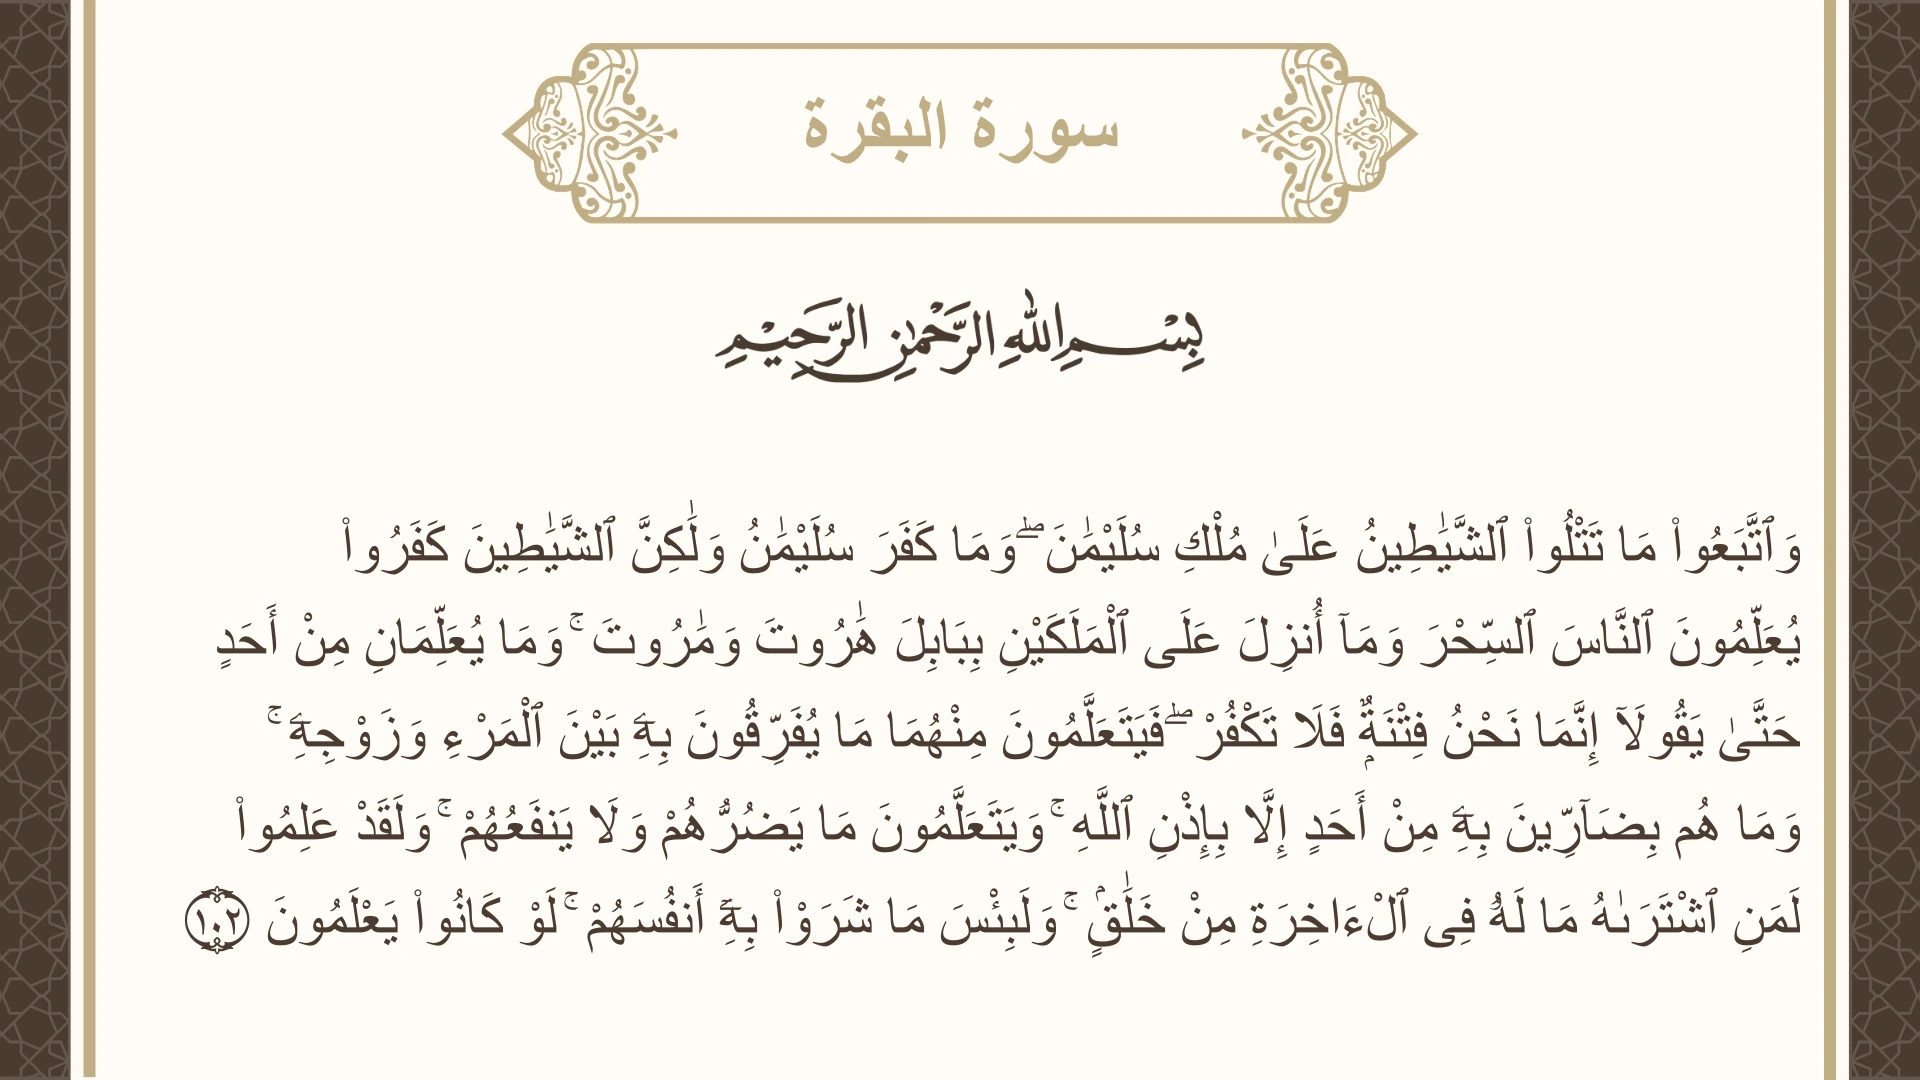 سورة البقرة
بِسْمِ اللهِ الرَّحْمٰنِ الرَّحِيْمِ
وَٱتَّبَعُوا۟ مَا تَتْلُوا۟ ٱلشَّيَـٰطِينُ عَلَىٰ مُلْكِ سُلَيْمَـٰنَ ۖ وَمَا كَفَرَ سُلَيْمَـٰنُ وَلَـٰكِنَّ ٱلشَّيَـٰطِينَ كَفَرُوا۟
يُعَلِّمُونَ ٱلنَّاسَ ٱلسِّحْرَ وَمَآ أُنزِلَ عَلَى ٱلْمَلَكَيْنِ بِبَابِلَ هَـٰرُوتَ وَمَـٰرُوتَ ۚ وَمَا يُعَلِّمَانِ مِنْ أَحَدٍ
حَتَّىٰ يَقُولَآ إِنَّمَا نَحْنُ فِتْنَةٌۭ فَلَا تَكْفُرْ ۖ فَيَتَعَلَّمُونَ مِنْهُمَا مَا يُفَرِّقُونَ بِهِۦ بَيْنَ ٱلْمَرْءِ وَزَوْجِهِۦ ۚ
وَمَا هُم بِضَآرِّينَ بِهِۦ مِنْ أَحَدٍ إِلَّا بِإِذْنِ ٱللَّهِ ۚ وَيَتَعَلَّمُونَ مَا يَضُرُّهُمْ وَلَا يَنفَعُهُمْ ۚ وَلَقَدْ عَلِمُوا۟
لَمَنِ ٱشْتَرَىٰهُ مَا لَهُۥ فِى ٱلْـَٔاخِرَةِ مِنْ خَلَـٰقٍۢ ۚ وَلَبِئْسَ مَا شَرَوْا۟ بِهِۦٓ أَنفُسَهُمْ ۚ لَوْ كَانُوا۟ يَعْلَمُونَ ١٠٢